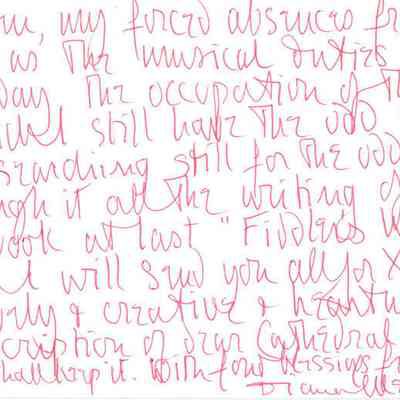 my forced absences fr
as The musical duties
day The occupation of Th
I still have The odd
searching still for The odd
ugh it all The writing of
book at last "Fiddlers
I will send you all for X
& creative & healthy
cription of dear Cathedral
shall keep it. With fond blessings fr